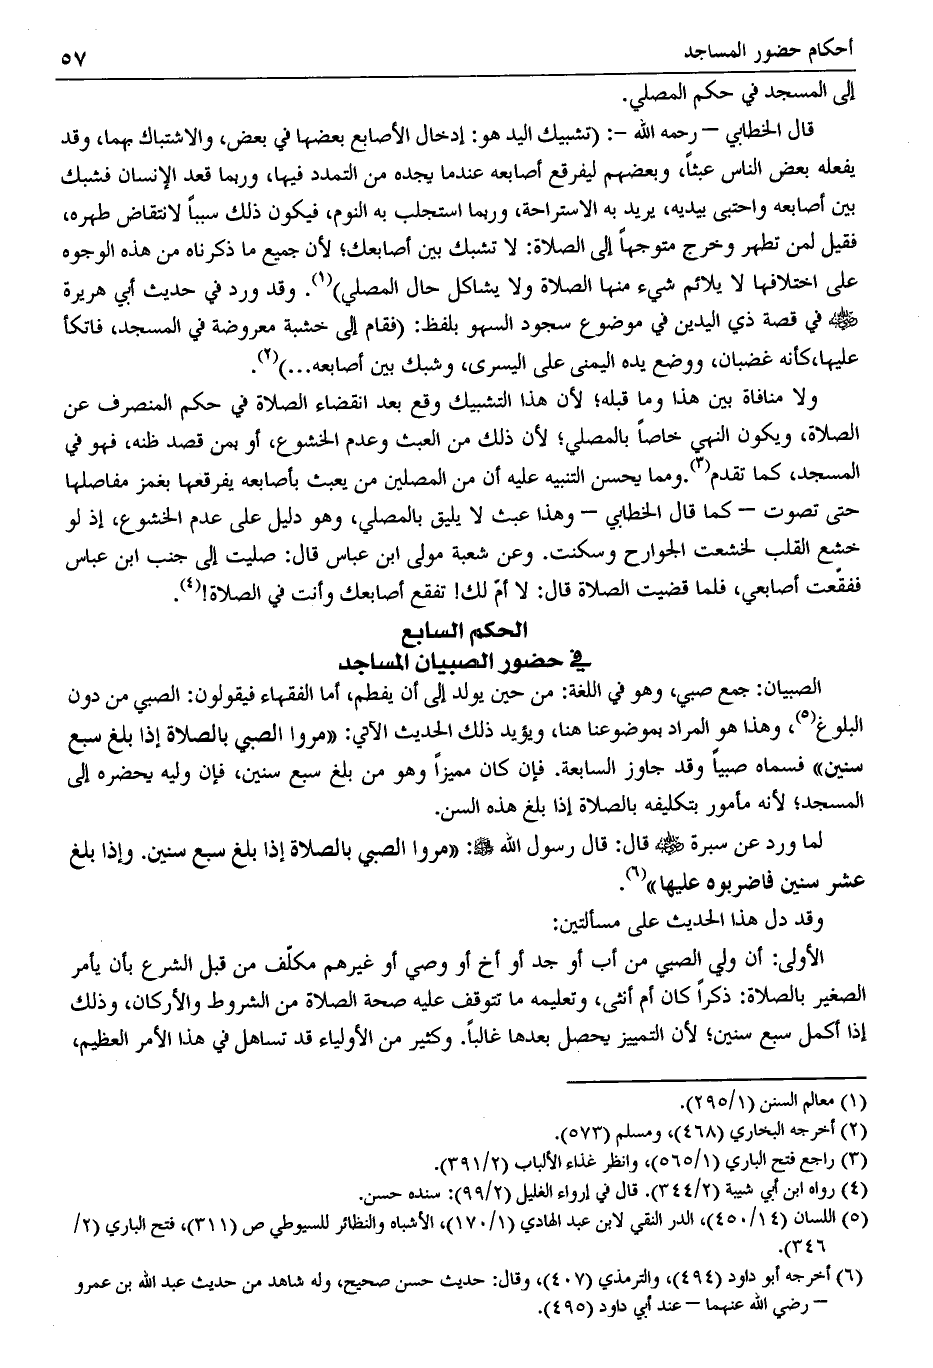 أحكام حضور المساجد ٥٧
إلى المسجد في حكم المصلي.
قال الخطابي – رحمه الله –: (تشبيك اليد هو: إدخال الأصابع بعضها في بعض، والاشتباك بهما، وقد
يفعله بعض الناس عبثاً، وبعضهم ليفرقع أصابعه عندما يجده من التمدد فيها، وربما قعد الإنسان فشبك
بين أصابعه واحتبى بيديه، يريد به الاستراحة، وربما استجلب به النوم، فيكون ذلك سبباً لانتقاض طهره،
فقيل لمن تطهر وخرج متوجهاً إلى الصلاة: لا تشبك بين أصابعك؛ لأن جميع ما ذكرناه من هذه الوجوه
على اختلافها لا يلائم شيء منها الصلاة ولا يشاكل حال المصلي)(١). وقد ورد في حديث أبي هريرة
رضي الله عنه في قصة ذي اليدين في موضوع سجود السهو بلفظ: (فقام إلى خشبة معروضة في المسجد، فاتكأ
عليها،كأنه غضبان، ووضع يده اليمنى على اليسرى، وشبك بين أصابعه...)(٢).
ولا منافاة بين هذا وما قبله؛ لأن هذا التشبيك وقع بعد انقضاء الصلاة في حكم المنصرف عن
الصلاة، ويكون النهي خاصاً بالمصلي؛ لأن ذلك من العبث وعدم الخشوع، أو بمن قصد ظنه، فهو في
المسجد، كما تقدم(٣).ومما يحسن التنبيه عليه أن من المصلين من يعبث بأصابعه يفرقعها بغمز مفاصلها
حتى تصوت – كما قال الخطابي – وهذا عبث لا يليق بالمصلي، وهو دليل على عدم الخشوع، إذ لو
خشع القلب لخشعت الجوارح وسكنت. وعن شعبة مولى ابن عباس قال: صليت إلى جنب ابن عباس
ففقّعت أصابعي، فلما قضيت الصلاة قال: لا أمّ لك! تفقع أصابعك وأنت في الصلاة!(٤).
الحكم السابع
في حضور الصبيان المساجد
الصبيان: جمع صبي، وهو في اللغة: من حين يولد إلى أن يفطم، أما الفقهاء فيقولون: الصبي من دون
البلوغ(٥)، وهذا هو المراد بموضوعنا هنا، ويؤيد ذلك الحديث الآتي: «مروا الصبي بالصلاة إذا بلغ سبع
سنين» فسماه صبياً وقد جاوز السابعة. فإن كان مميزاً وهو من بلغ سبع سنين، فإن وليه يحضره إلى
المسجد؛ لأنه مأمور بتكليفه بالصلاة إذا بلغ هذه السن.
لما ورد عن سبرة رضي الله عنه قال: قال رسول الله ﷺ: «مروا الصبي بالصلاة إذا بلغ سبع سنين. وإذا بلغ
عشر سنين فاضربوه عليها»(٦).
وقد دل هذا الحديث على مسألتين:
الأولى: أن ولي الصبي من أب أو جد أو أخ أو وصي أو غيرهم مكلّف من قبل الشرع بأن يأمر
الصغير بالصلاة: ذكراً كان أم أنثى، وتعليمه ما تتوقف عليه صحة الصلاة من الشروط والأركان، وذلك
إذا أكمل سبع سنين؛ لأن التمييز يحصل بعدها غالباً. وكثير من الأولياء قد تساهل في هذا الأمر العظيم،
(١) معالم السنن (٢٩٥/١).
(٢) أخرجه البخاري (٤٦٨)، ومسلم (٥٧٣).
(٣) راجع فتح الباري (٥٦٥/١)، وانظر غذاء الألباب (٣٩١/٢).
(٤) رواه ابن أبي شيبة (٣٤٤/٢). قال في إرواء الغليل (٩٩/٢): سنده حسن.
(٥) اللسان (٤٥٠/١٤)، الدر النقي لابن عبد الهادي (١٧٠/١)، الأشباه والنظائر للسيوطي ص (٣١١)، فتح الباري (٢/
٣٤٦).
(٦) أخرجه أبو داود (٤٩٤)، والترمذي (٤٠٧)، وقال: حديث حسن صحيح، وله شاهد من حديث عبد الله بن عمرو
– رضي الله عنهما – عند أبي داود (٤٩٥).